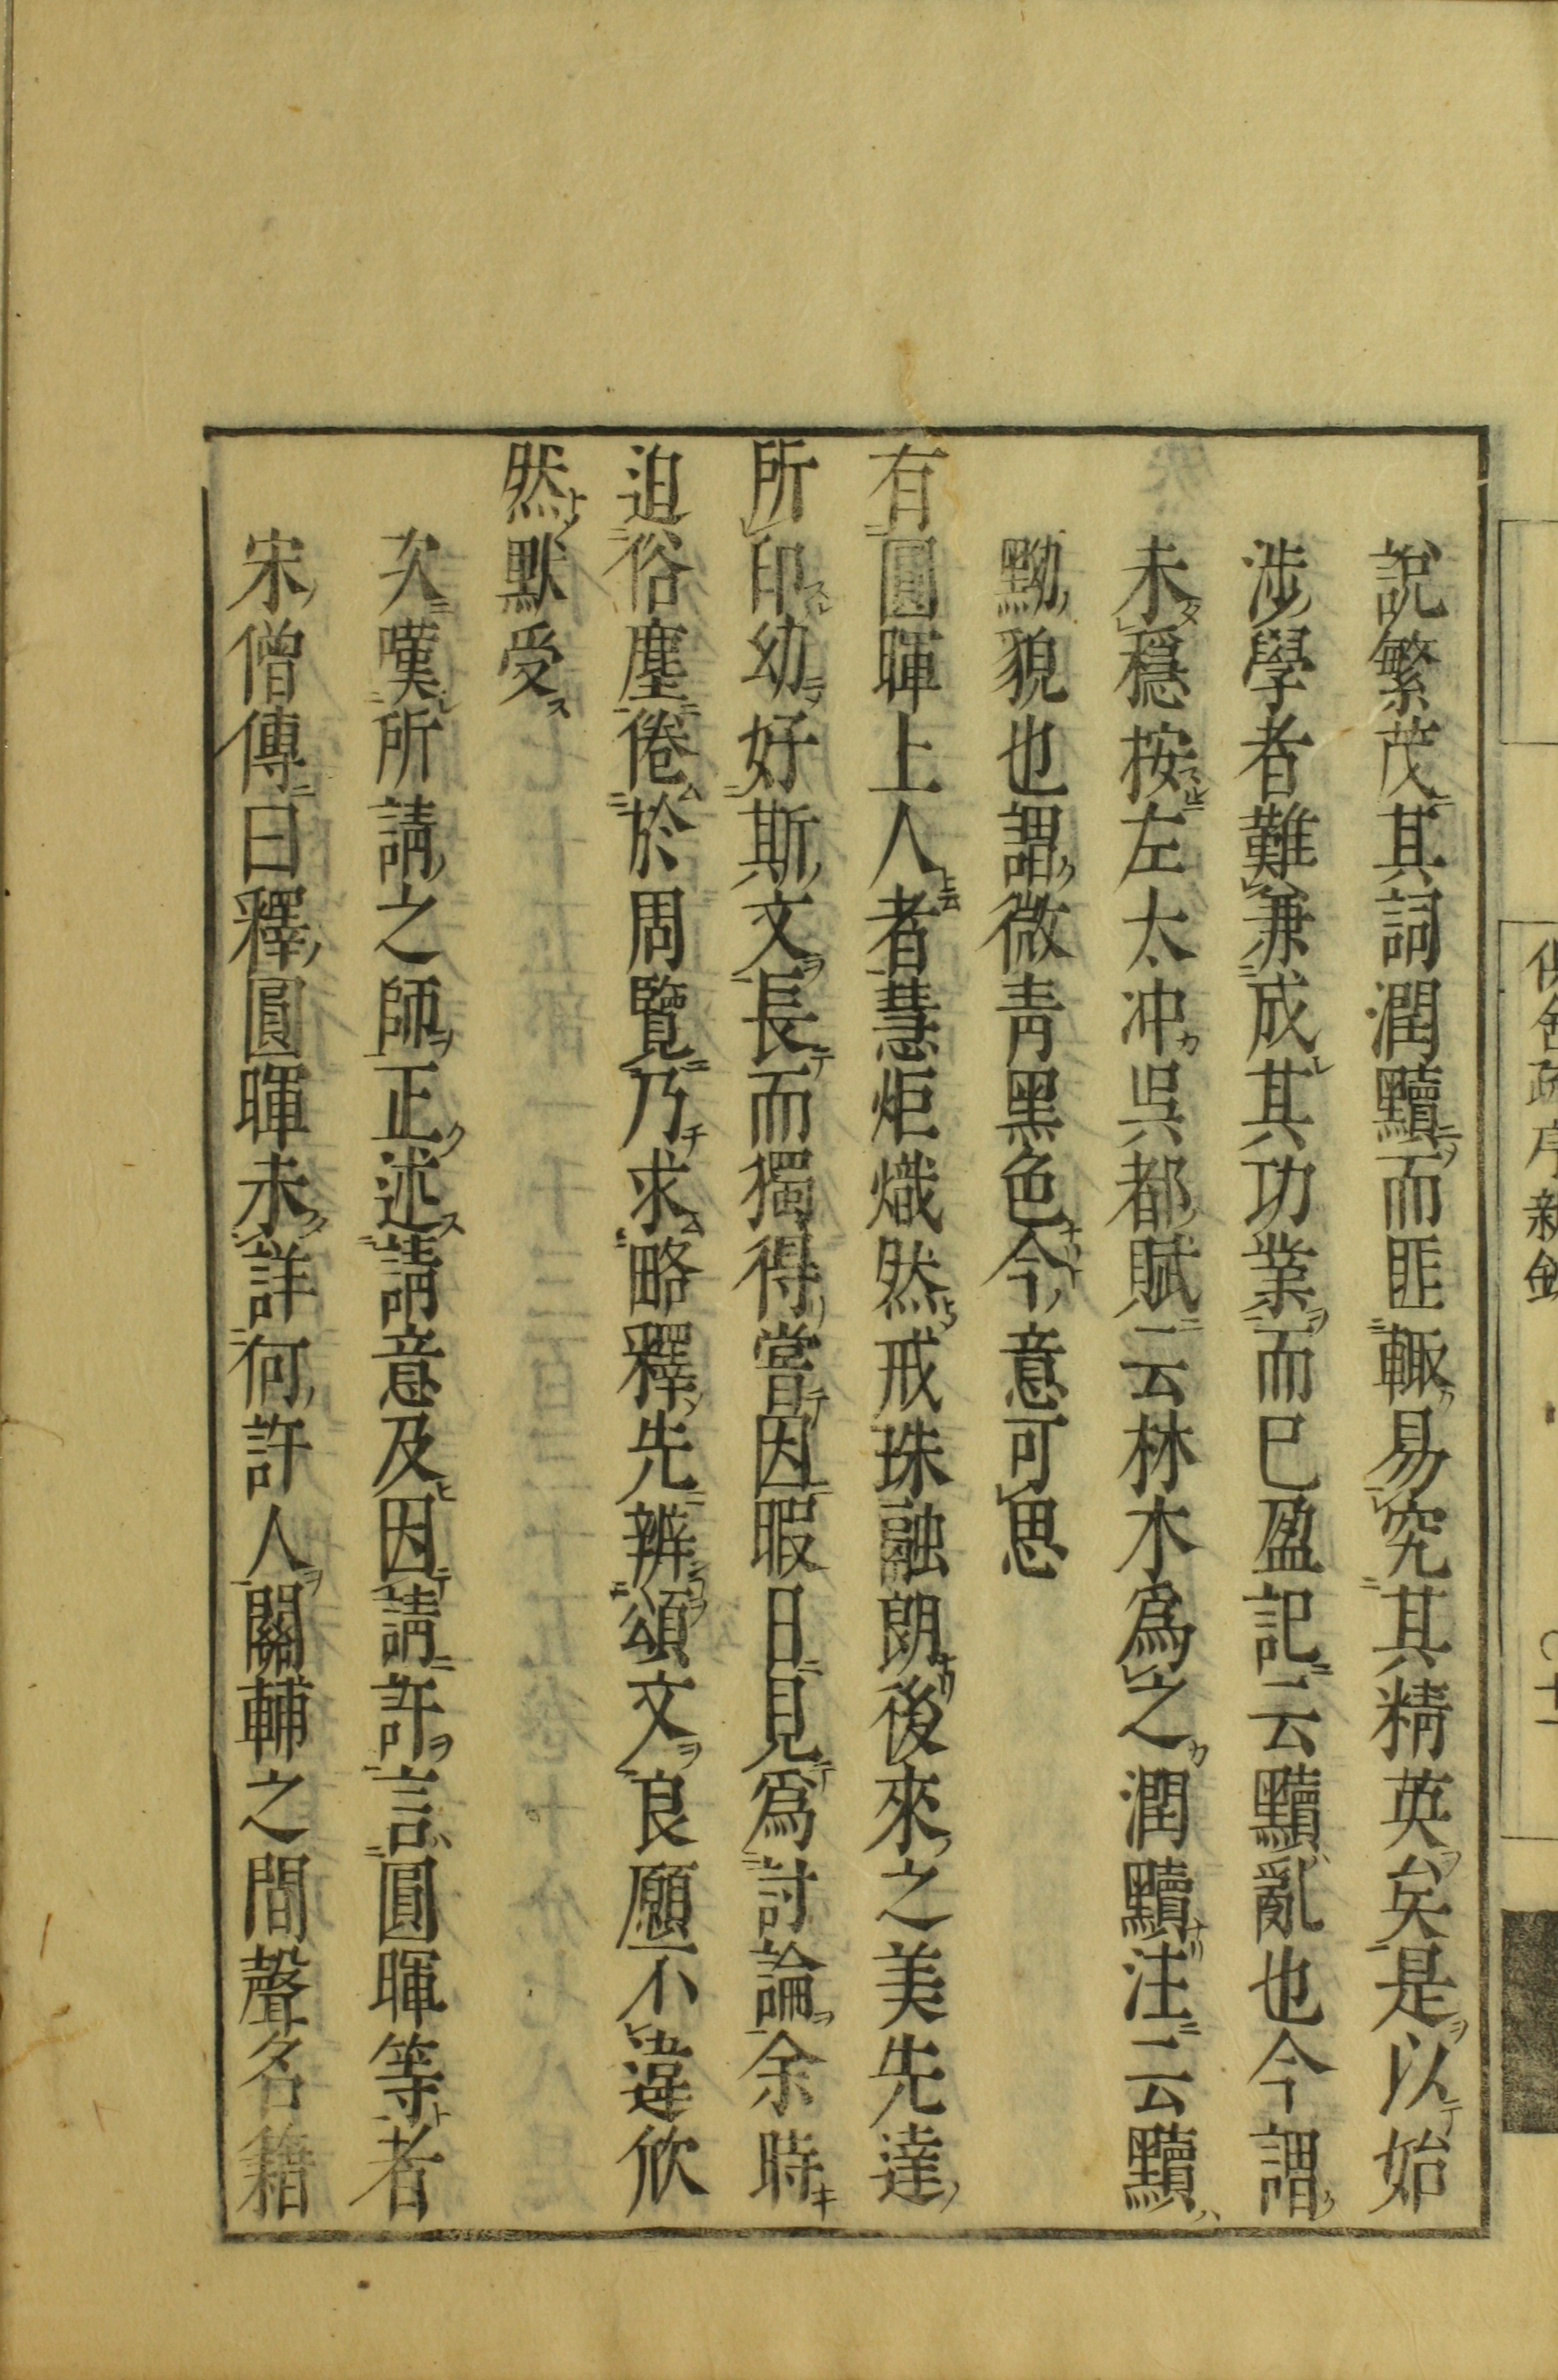 說繁茂其詞潤黷而匪輙易究其精英矣是以始
涉學者難兼成其功業而已盈記云黷亂也今謂
未穩按左太冲呉都賦云林木爲之潤黷注云黷
黝貌也謂微青黑色今意可思
有圓暉上人者慧炬熾然戒珠融朗後來之美先達
所印幼好斯文長而獨得嘗因暇日見爲討論余時
迫俗塵倦於周覽乃求略釋先辨頌文良願不違欣
然默受
次嘆所請之師正述請意及因請許言圓暉等者
宋僧傳曰釋圓暉未詳何許人關輔之間聲名籍